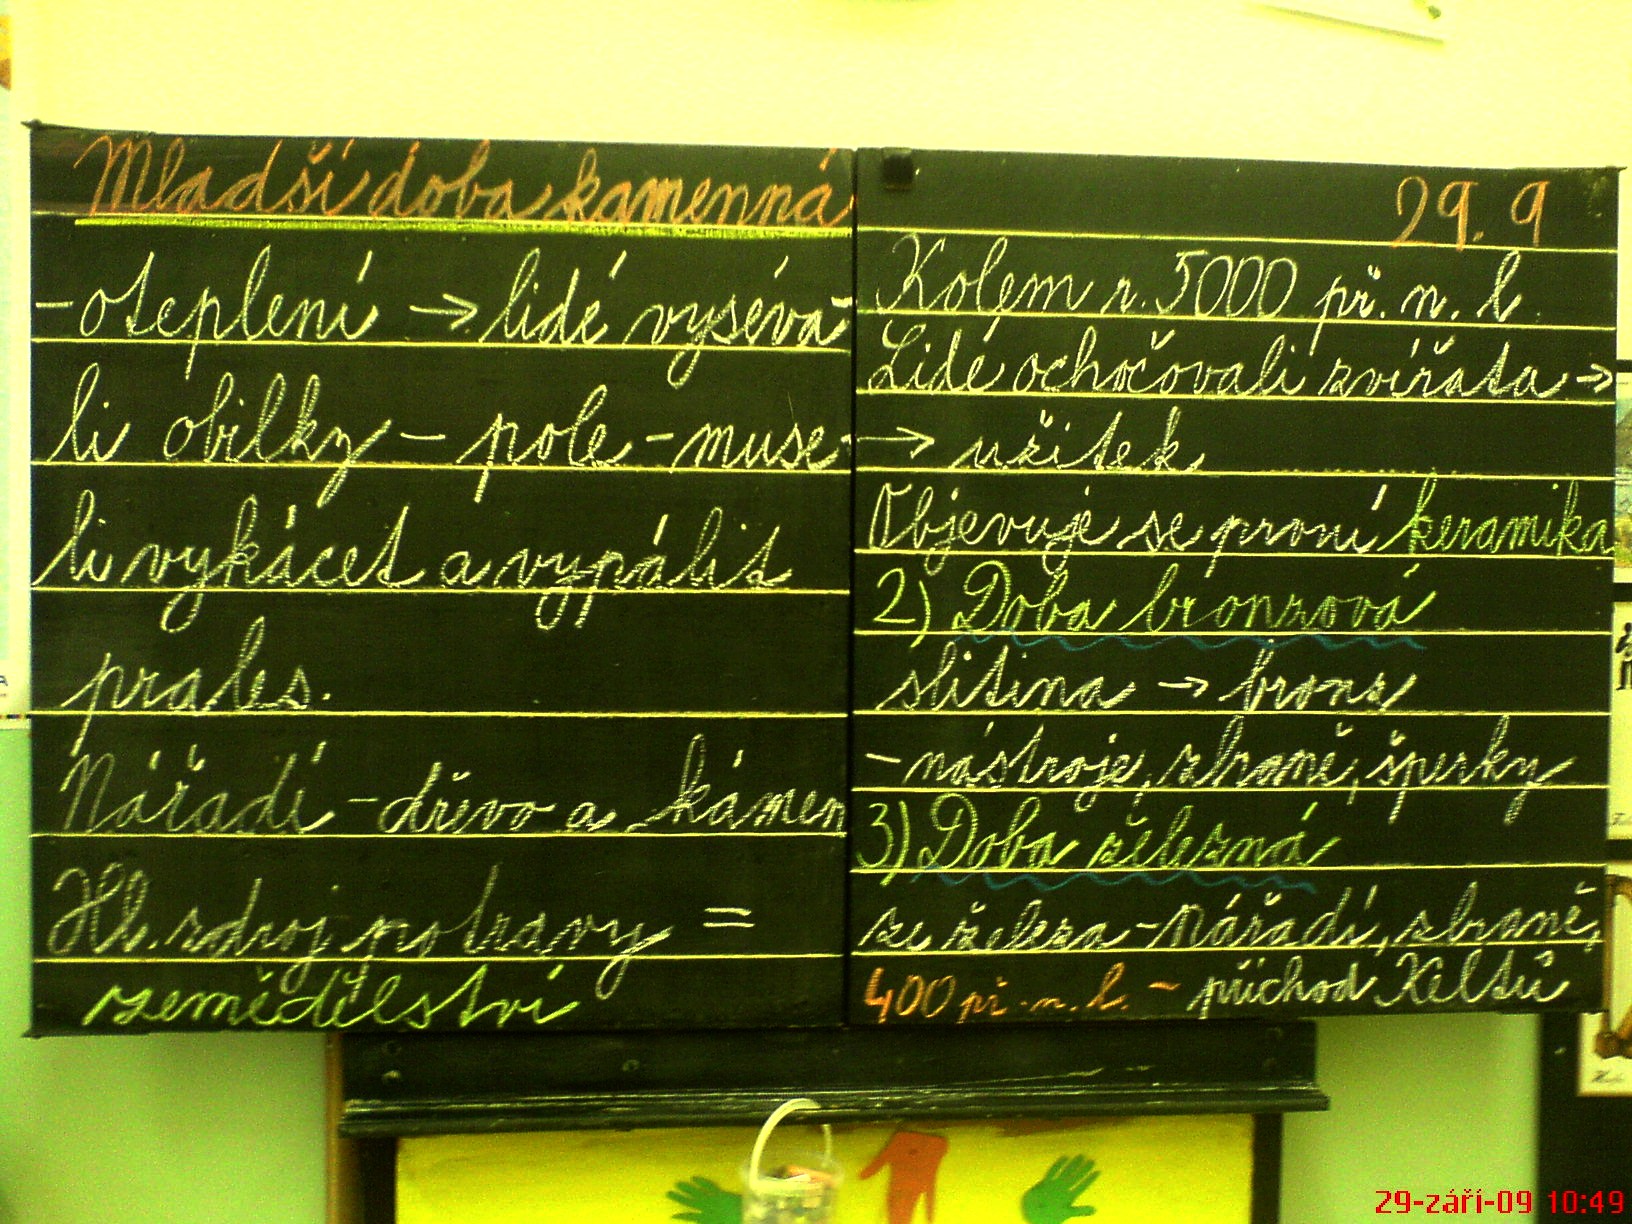 Mladší doba kamenná
- oteplení → lidé vyséva-
li obilky - pole - muse-
li vykácet a vypálit
prales.
Nářadí - dřevo a kámen
Hl. zdroj potravy =
zemědělství
29. 9
Kolem r. 5000 př. n. l
Lidé ochočovali zvířata →
→ užitek
Objevuje se první keramika
2) Doba bronzová
slitina → bronz
- nástroje, zbraně, šperky
3) Doba železná
ze železa - Nářadí, zbraně,
400 př. n. l. - příchod Keltů
29-září-09 10:49